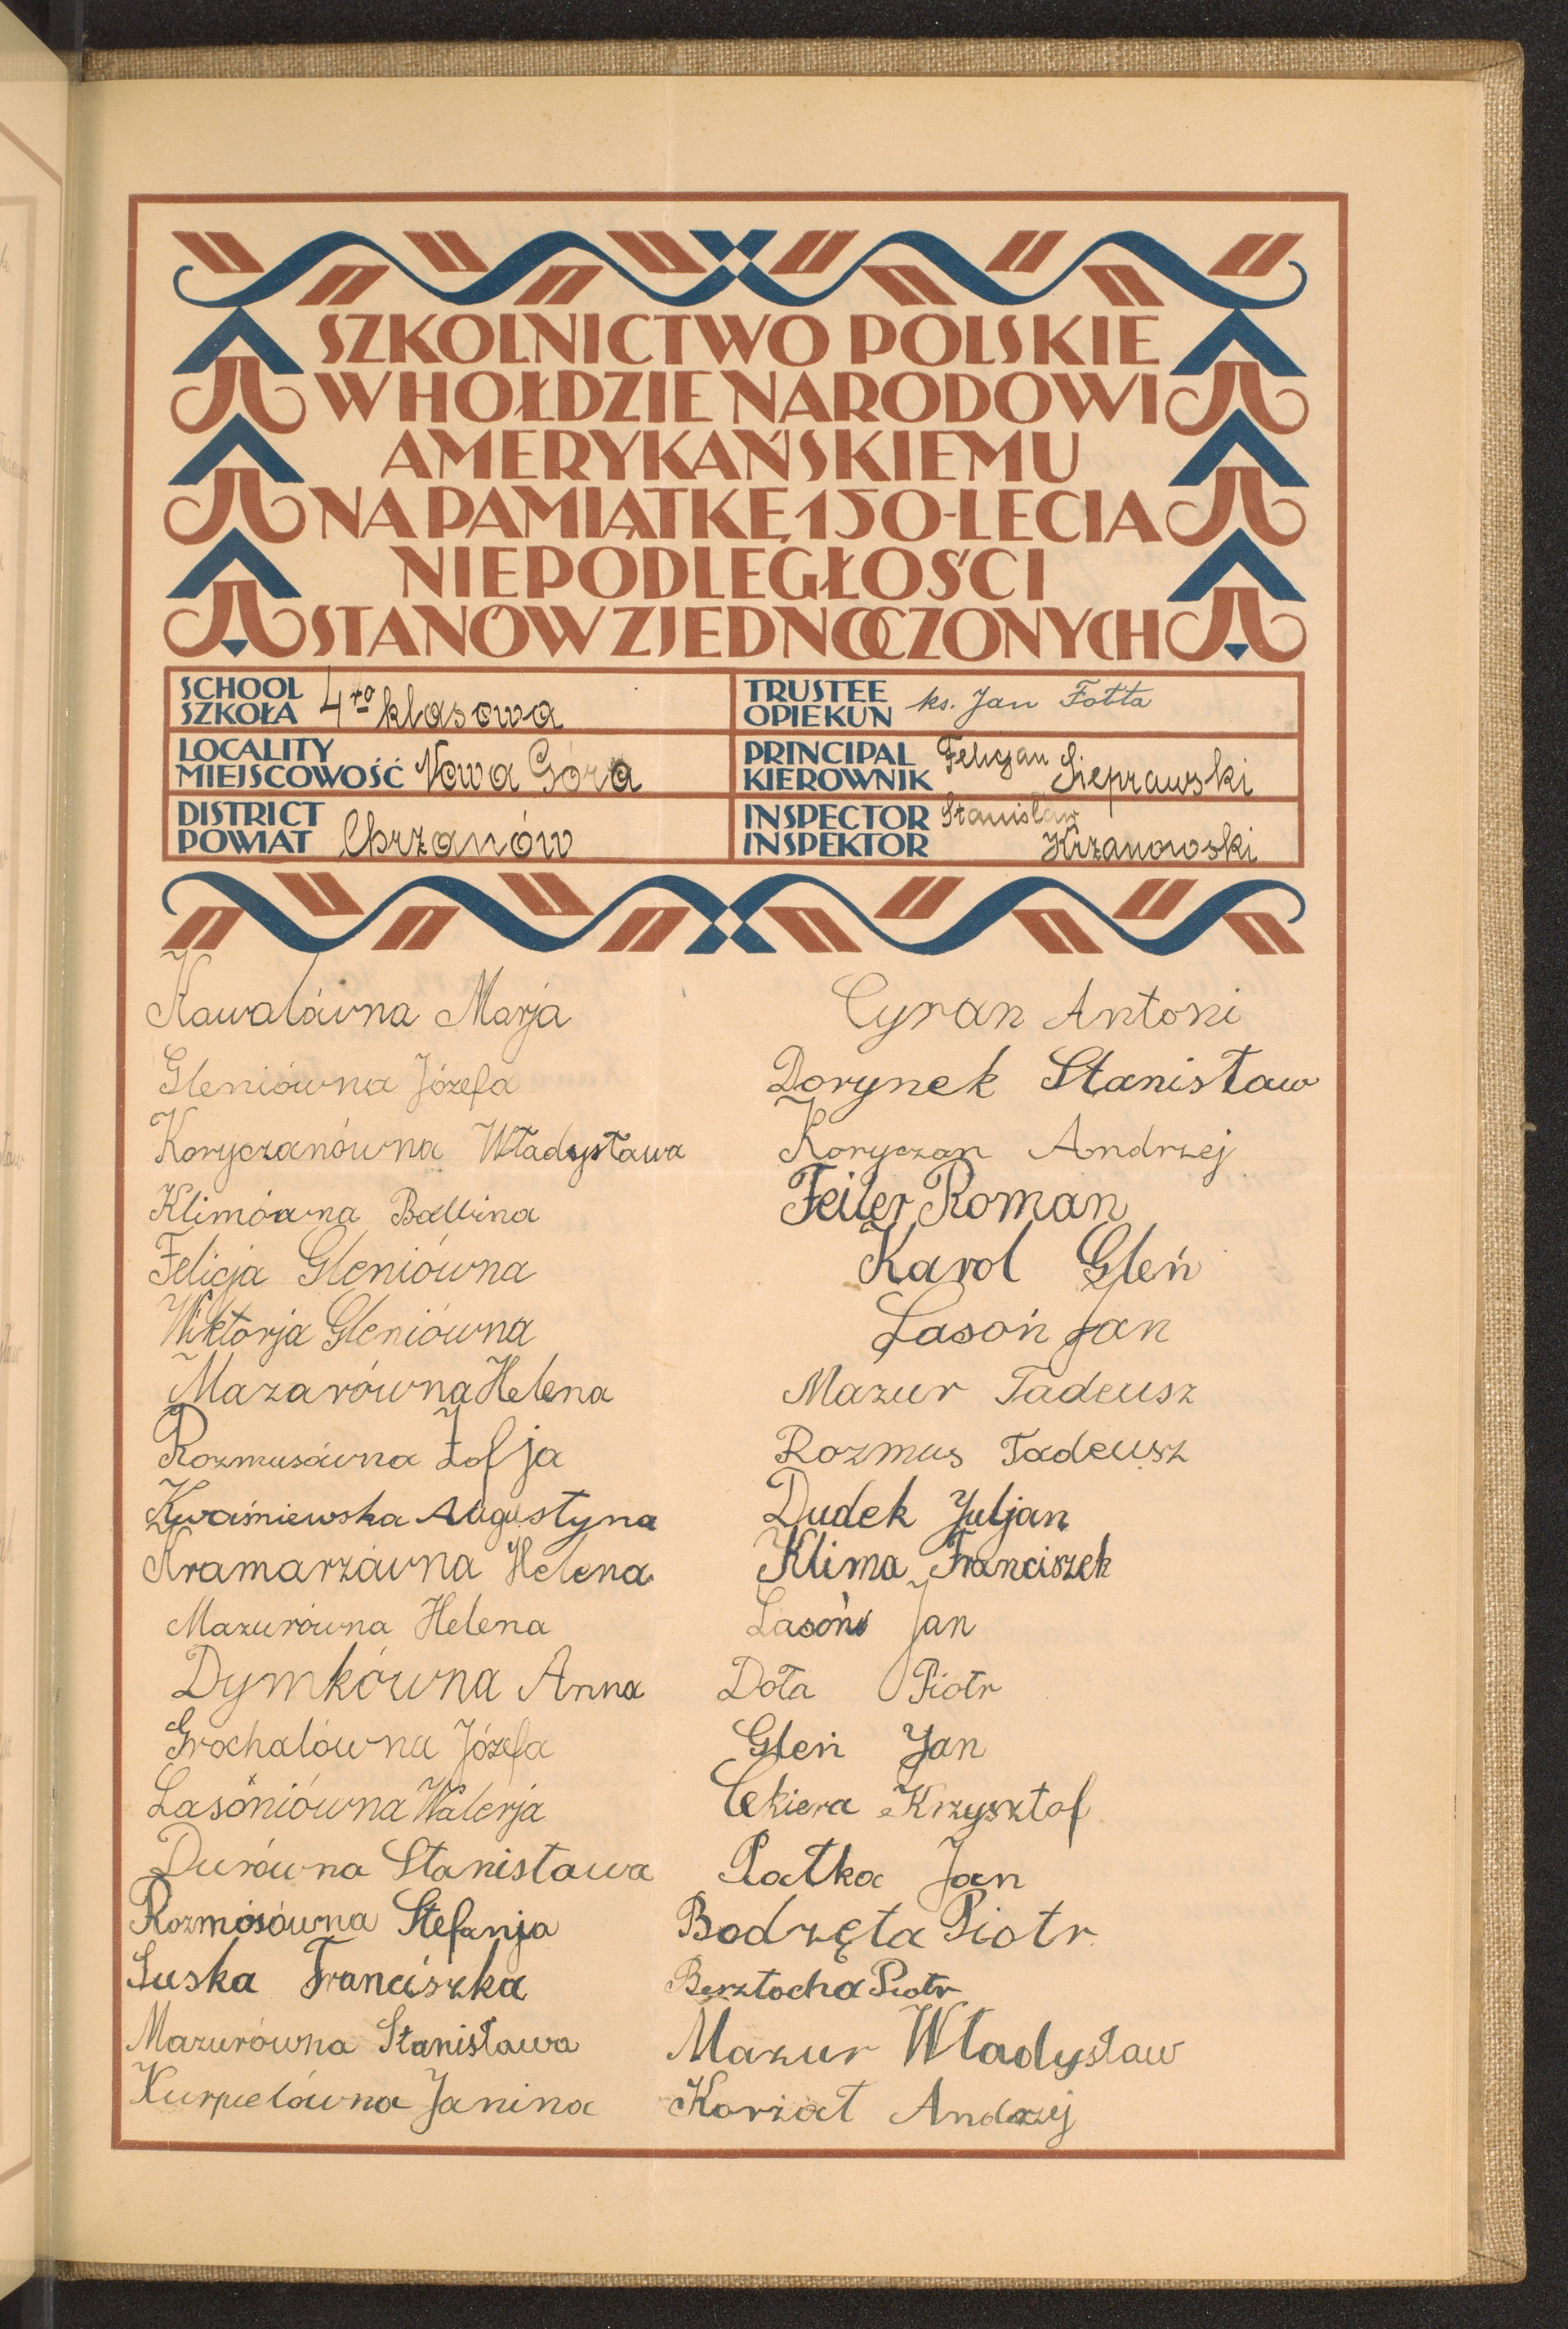 SZKOLNICTWO POLSKIE
W HOŁDZIE NARODOWI
AMERYKAŃSKIEMU
NA PAMIĄTKĘ 150-LECIA
NIEPODLEGŁOŚCI
STANÓW ZJEDNOCZONYCH
SCHOOL
SZKOŁA 4ro klasowa
TRUSTEE
OPIEKUN ks. Jan Fotta
LOCALITY
MIEJSCOWOŚĆ Nowa Góra
PRINCIPAL
KIEROWNIK Felicjan Sieprawski
DISTRICT
POWIAT Chrzanów
INSPECTOR
INSPEKTOR Stanisław Krzanowski
Kawalówna Marja
Gleniówna Józefa
Koryczanówna Władysława
Klimówna Balbina
Felicja Gleniówna
Wiktorja Gleniówna
Mazarówna Helena
Rozmusówna Zofja
Kwaśniewska Augustyna
Kramarzówna Helena
Mazurówna Helena
Dymkówna Anna
Grochalówna Józefa
Lasońiówna Walerja
Durówna Stanisława
Rozmósówna Stefanja
Luska Franciszka
Mazurówna Stanisława
Kurpielówna Janina
Cyran Antoni
Dorynek Stanisław
Koryczan Andrzej
Feiler Roman
Karol Gleń
Lasoń Jan
Mazur Tadeusz
Rozmus Tadeusz
Dudek Juljan
Klima Franciszek
Lasoń Jan
Dota Piotr
Gleń Jan
Cekiera Krzysztof
Patka Jan
Bodzęta Piotr
Piotr
Mazur Władysław
Andrzej